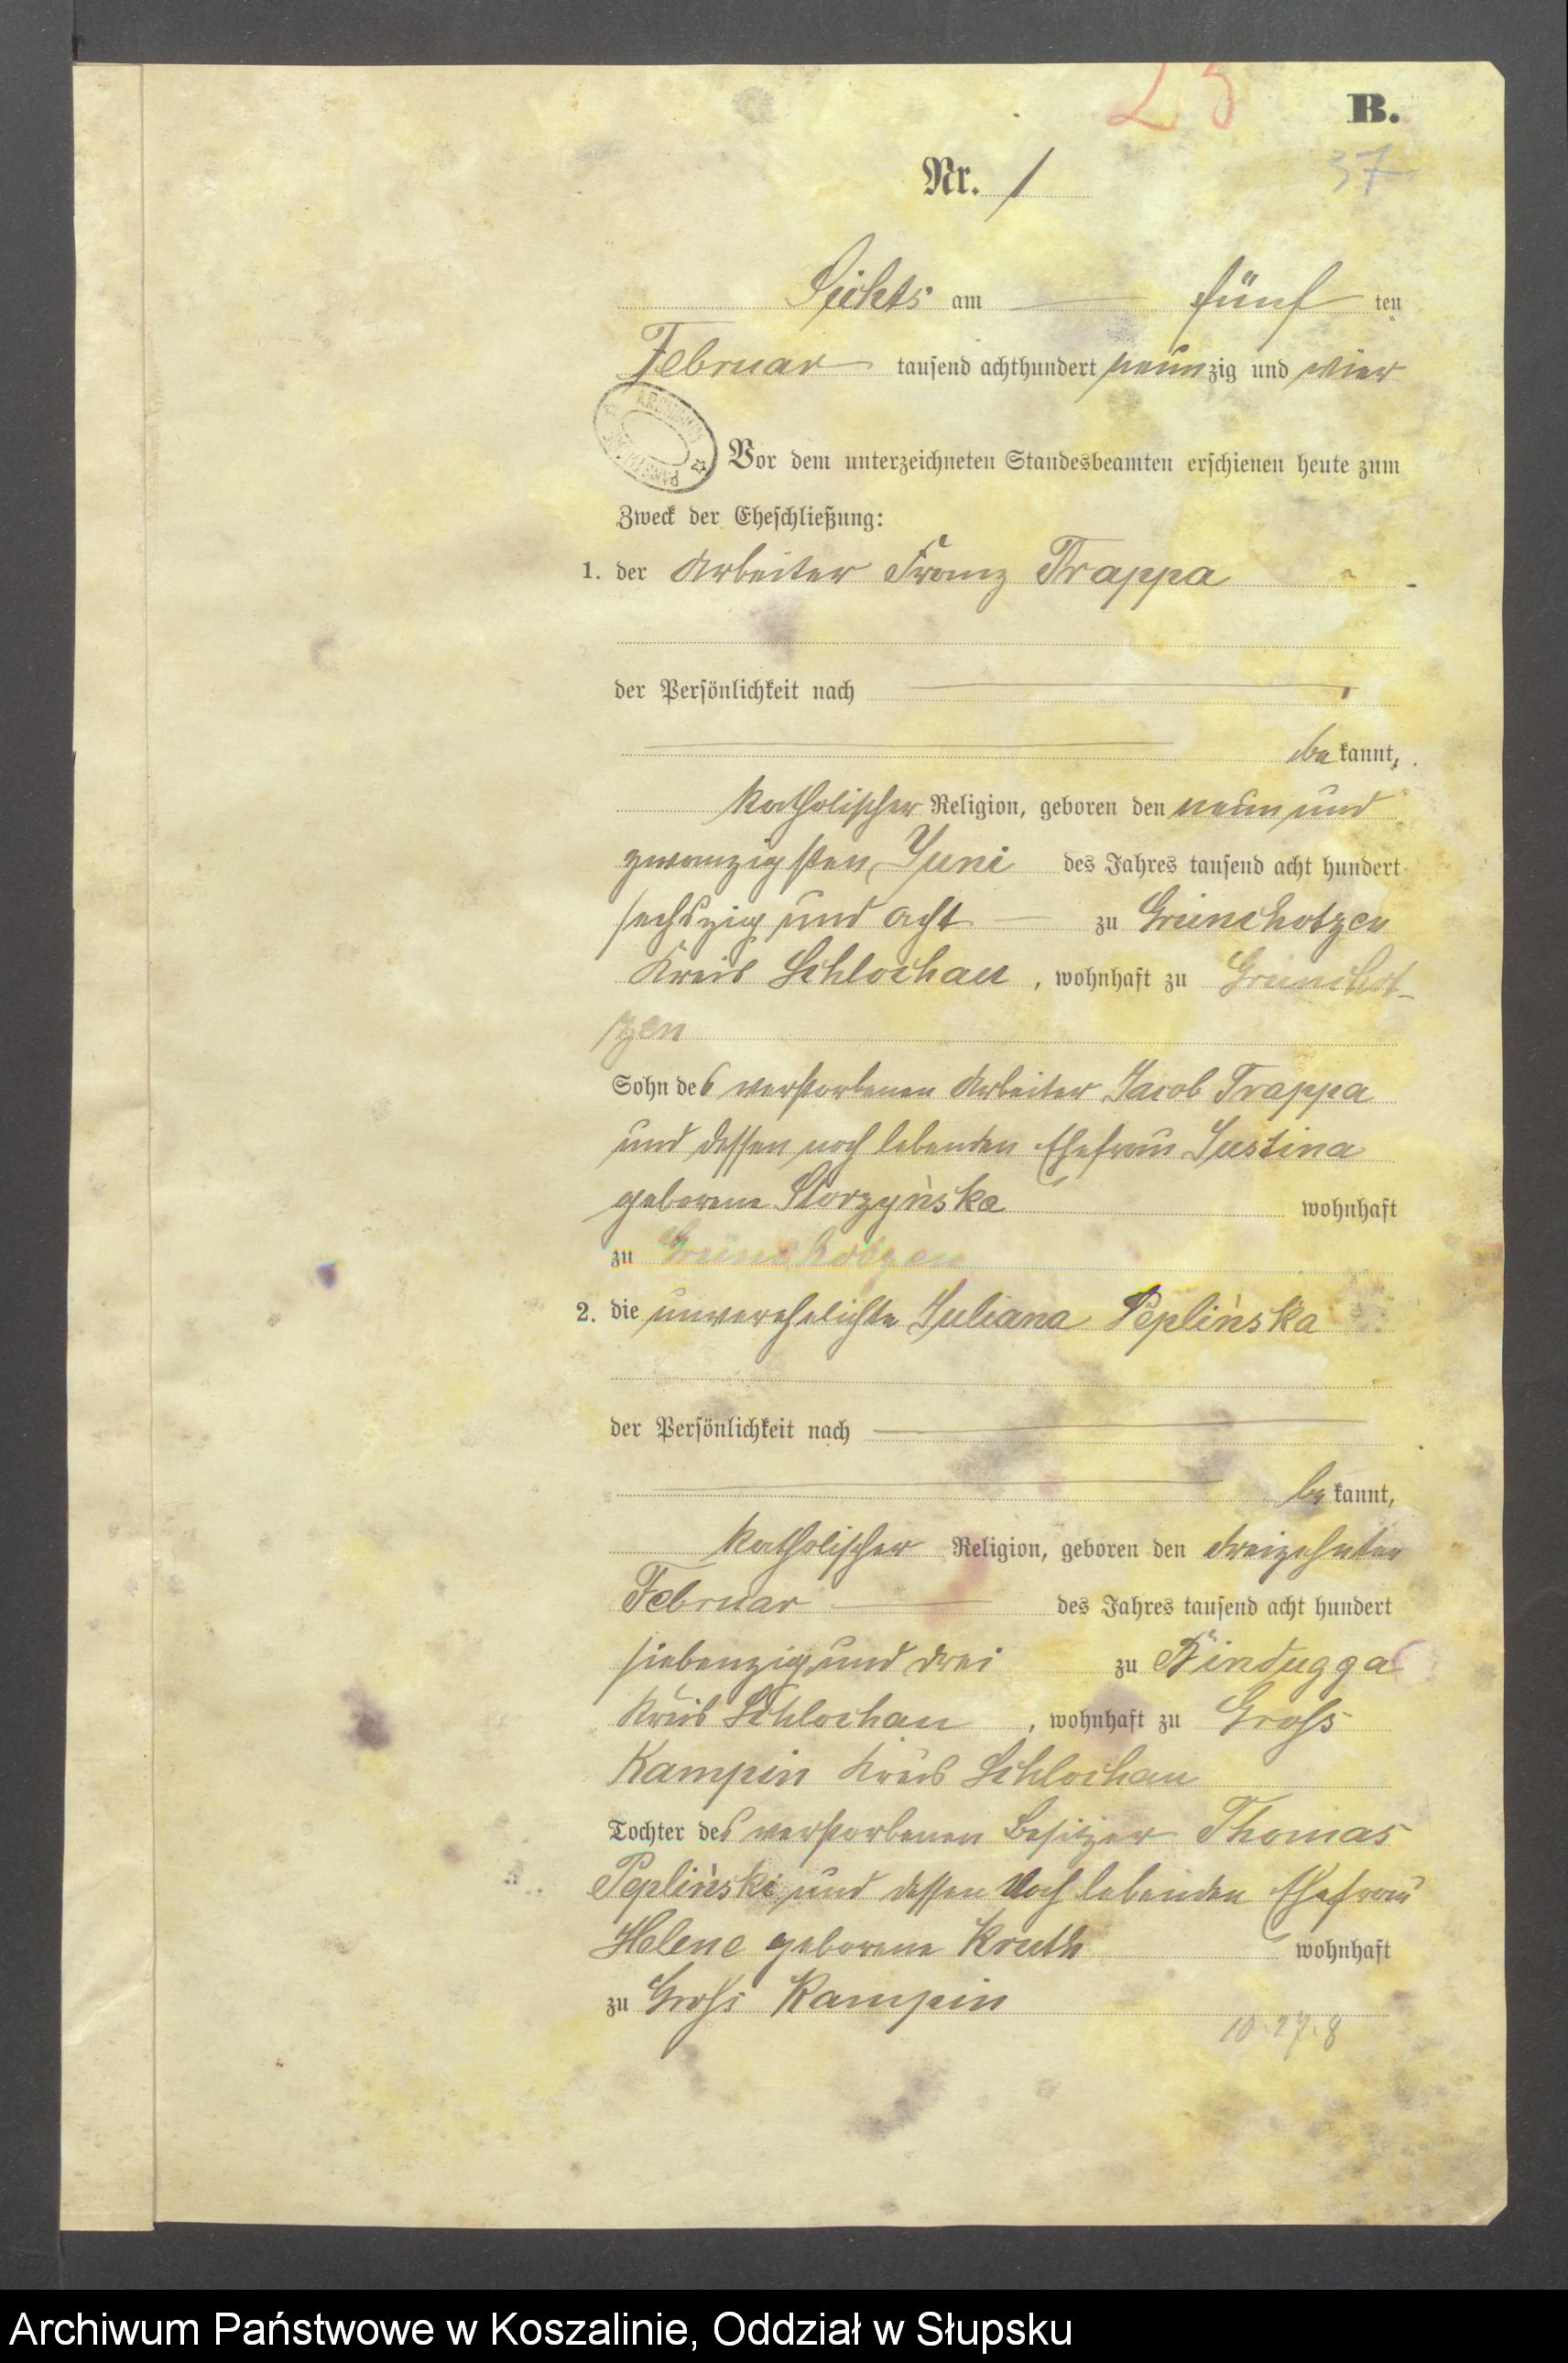 B.
23
37
Nr. 1
am fünf ten
Februar tausend achthundert neunzig und vier
Vor dem unterzeichneten Standesbeamten erschienen heute zum
Zweck der Eheschließung:
1. der Arbeiter Franz Trappa
der Persönlichkeit nach
bekannt,
katholischer Religion, geboren den neun und
zwanzigsten Juni des Jahres tausend acht hundert
sechszig und acht zu Grünchotzen
Kreis Schlochau, wohnhaft zu Grünchot-
zen
Sohn des verstorbenen Arbeiter Jacob Trappa
und dessen noch lebenden Ehefrau Justina
geborene wohnhaft
zu Grünchotzen
2. die unverehelichte Juliana Peplińska
der Persönlichkeit nach
bekannt,
katholischer Religion, geboren den dreizehnten
Februar des Jahres tausend acht hundert
siebenzig und drei zu Bindugga
Kreis Schlochau, wohnhaft zu Groß
Kampin Kreis Schlochau
Tochter des verstorbenen Besitzer Thomas
Pepliński und dessen noch lebenden Ehefrau
Helene geborene Kruth wohnhaft
zu Groß Kampin
10.27.8
Archiwum Państwowe w Koszalinie, Oddział w Słupsku